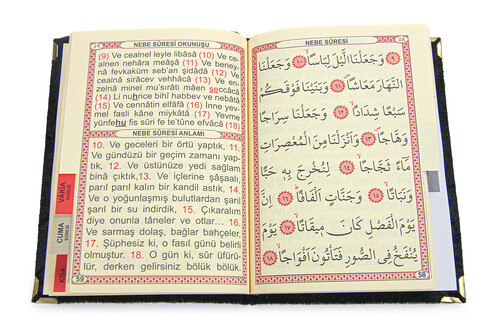 NEBE SÛRESİ OKUNUŞU
(9) Ve cealnel leyle libâsâ (10) Ve ce-
alnen nehâra meâşâ (11) Ve beney-
nâ fevkaküm seb'an şidâdâ (12) Ve
cealnâ sirâcev vehhâcâ (13) Ve en-
zelnâ minel mu'sırâti mâen seccâcâ
(14) Li nuhrice bihî habbev ve nebâtâ
(15) Ve cennâtin elfâfâ (16) İnne yev-
mel fasli kâne mîykâtâ (17) Yevme
yünfehu fis sûri fe te'tûne efvâcâ (18)
NEBE SÛRESİ ANLAMI
10. Ve geceleri bir örtü yaptık, 11.
Ve gündüzü bir geçim zamanı yap-
tık, 12. Ve üstünüze yedi sağlam
bina çıktık,13. Ve içlerine şâşaalı,
parıl parıl kalın bir kandil astık, 14.
Ve o yoğunlaşmış bulutlardan şarıl
şarıl bir su indirdik, 15. Çıkaralım
diye onunla tâneler ve otlar... 16.
Ve sarmaş dolaş, bağlar bahçeler.
17. Şüphesiz ki, o fasıl günü belirli
olmuştur. 18. O gün ki, sûr üfürü-
lür, derken gelirsiniz bölük bölük.
59
VÂKIA
CUMA
KISA
NEBE SÛRESİ
٩ وَجَعَلْنَا الَّيْلَ لِبَاسًا ١٠ وَجَعَلْنَا
النَّهَارَ مَعَاشًا ١١ وَبَنَيْنَا فَوْقَكُمْ
سَبْعًا شِدَادًا ١٢ وَجَعَلْنَا سِرَاجًا
وَهَّاجًا ١٣ وَاَنْزَلْنَا مِنَ الْمُعْصِرَاتِ
مَاءً ثَجَّاجًا ١٤ لِنُخْرِجَ بِهِ حَبًّا
وَنَبَاتًا ١٥ وَجَنَّاتٍ اَلْفَافًا ١٦ اِنَّ
يَوْمَ الْفَصْلِ كَانَ مِيقَاتًا ١٧ يَوْمَ
يُنْفَخُ فِى الصُّورِ فَتَأْتُونَ اَفْوَاجًا ١٨
58